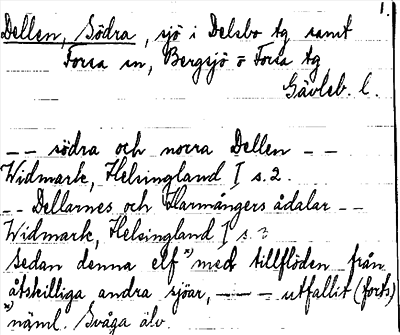 1.
Dellen, Södra, sjö i Delsbo tg samt
Forsa sn, Bergsjö o Forsa tg
Gävleb. l.
-- södra och norra Dellen --
Widmark, Helsingland I s. 2.
-- Dellarnes och Harmångers ådalar --
Widmark, Helsingland I s. ?
Sedan denna elf *) med tillflöden från
åtskilliga andra sjöar, --- utfallit (forts)
*) näml. Svåga älv